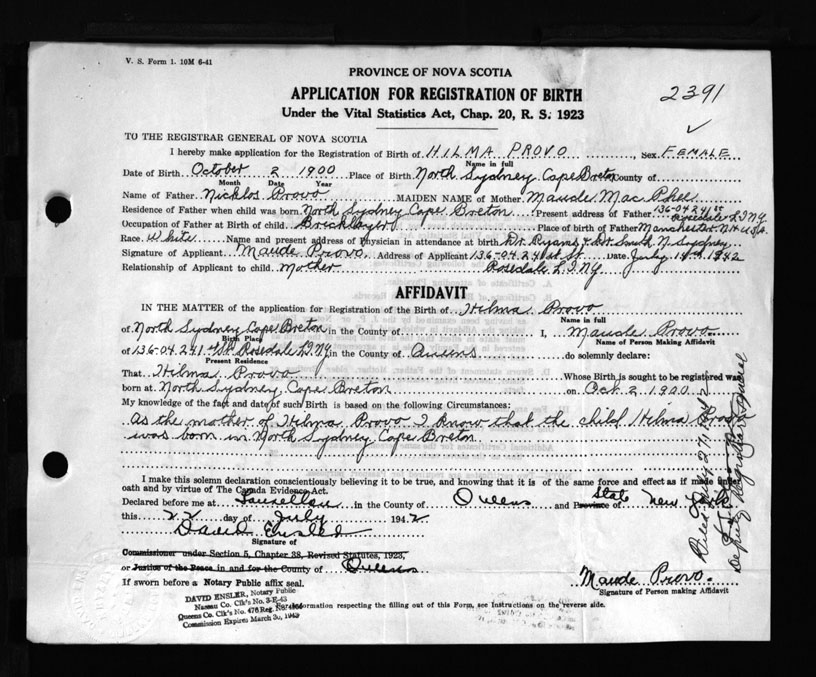 V. S. Form 1. 10M 6-41
PROVINCE OF NOVA SCOTIA
APPLICATION FOR REGISTRATION OF BIRTH
Under the Vital Statistics Act, Chap. 20, R. S. 1923
2391
TO THE REGISTRAR GENERAL OF NOVA SCOTIA
I hereby make application for the Registration of Birth of HILMA PROVO, Sex FEMALE
Name in full
Date of Birth October 2 1900 Place of Birth North Sydney Cape Breton County of
Month Date Year
Name of Father Nicklos Provo MAIDEN NAME of Mother Maude Mac Phee
Residence of Father when child was born North Sydney Cape Breton Present address of Father 136-04 241 st Rosedale L.I. N.Y.
Occupation of Father at Birth of child Bricklayer Place of birth of Father Manchester N.H. U.S.A.
Race White Name and present address of Physician in attendance at birth Dr. Ryans & Dr. Smith N. Sydney
Signature of Applicant Maude Provo Address of Applicant 136-04 241st St. Date July 1942
Relationship of Applicant to child Mother Rosedale L.I. N.Y.
AFFIDAVIT
IN THE MATTER of the application for Registration of the Birth of Hilma Provo
Name in full
of North Sydney Cape Breton in the County of I, Maude Provo
Birth Place Name of Person Making Affidavit
of 136-04 241st St Rosedale L.I. N.Y. in the County of Queens do solemnly declare:
Present Residence
That Hilma Provo Whose Birth is sought to be registered was
born at North Sydney, Cape Breton on Oct 2 1900
My knowledge of the fact and date of such Birth is based on the following Circumstances:
As the mother of Hilma Provo I know that the child Hilma Provo
was born in North Sydney Cape Breton.
I make this solemn declaration conscientiously believing it to be true, and knowing that it is of the same force and effect as if made under
oath and by virtue of The Canada Evidence Act.
Declared before me at Laurelton in the County of Queens and Province of State New York
this 22 day of July 1942
David Ensler
Signature of
Commissioner under Section 5, Chapter 38, Revised Statutes, 1923,
or Justice of the Peace in and for the County of Queens
If sworn before a Notary Public affix seal.
Maude Provo
Signature of Person making Affidavit
DAVID ENSLER, Notary Public
Nassau Co. Clk's No. 3-E-43
Queens Co. Clk's No. 476 Reg. No.
Commission Expires March 30, 1943
For information respecting the filling out of this Form, see Instructions on the reverse side.
Filed July 27, 1942
Deputy Registrar General